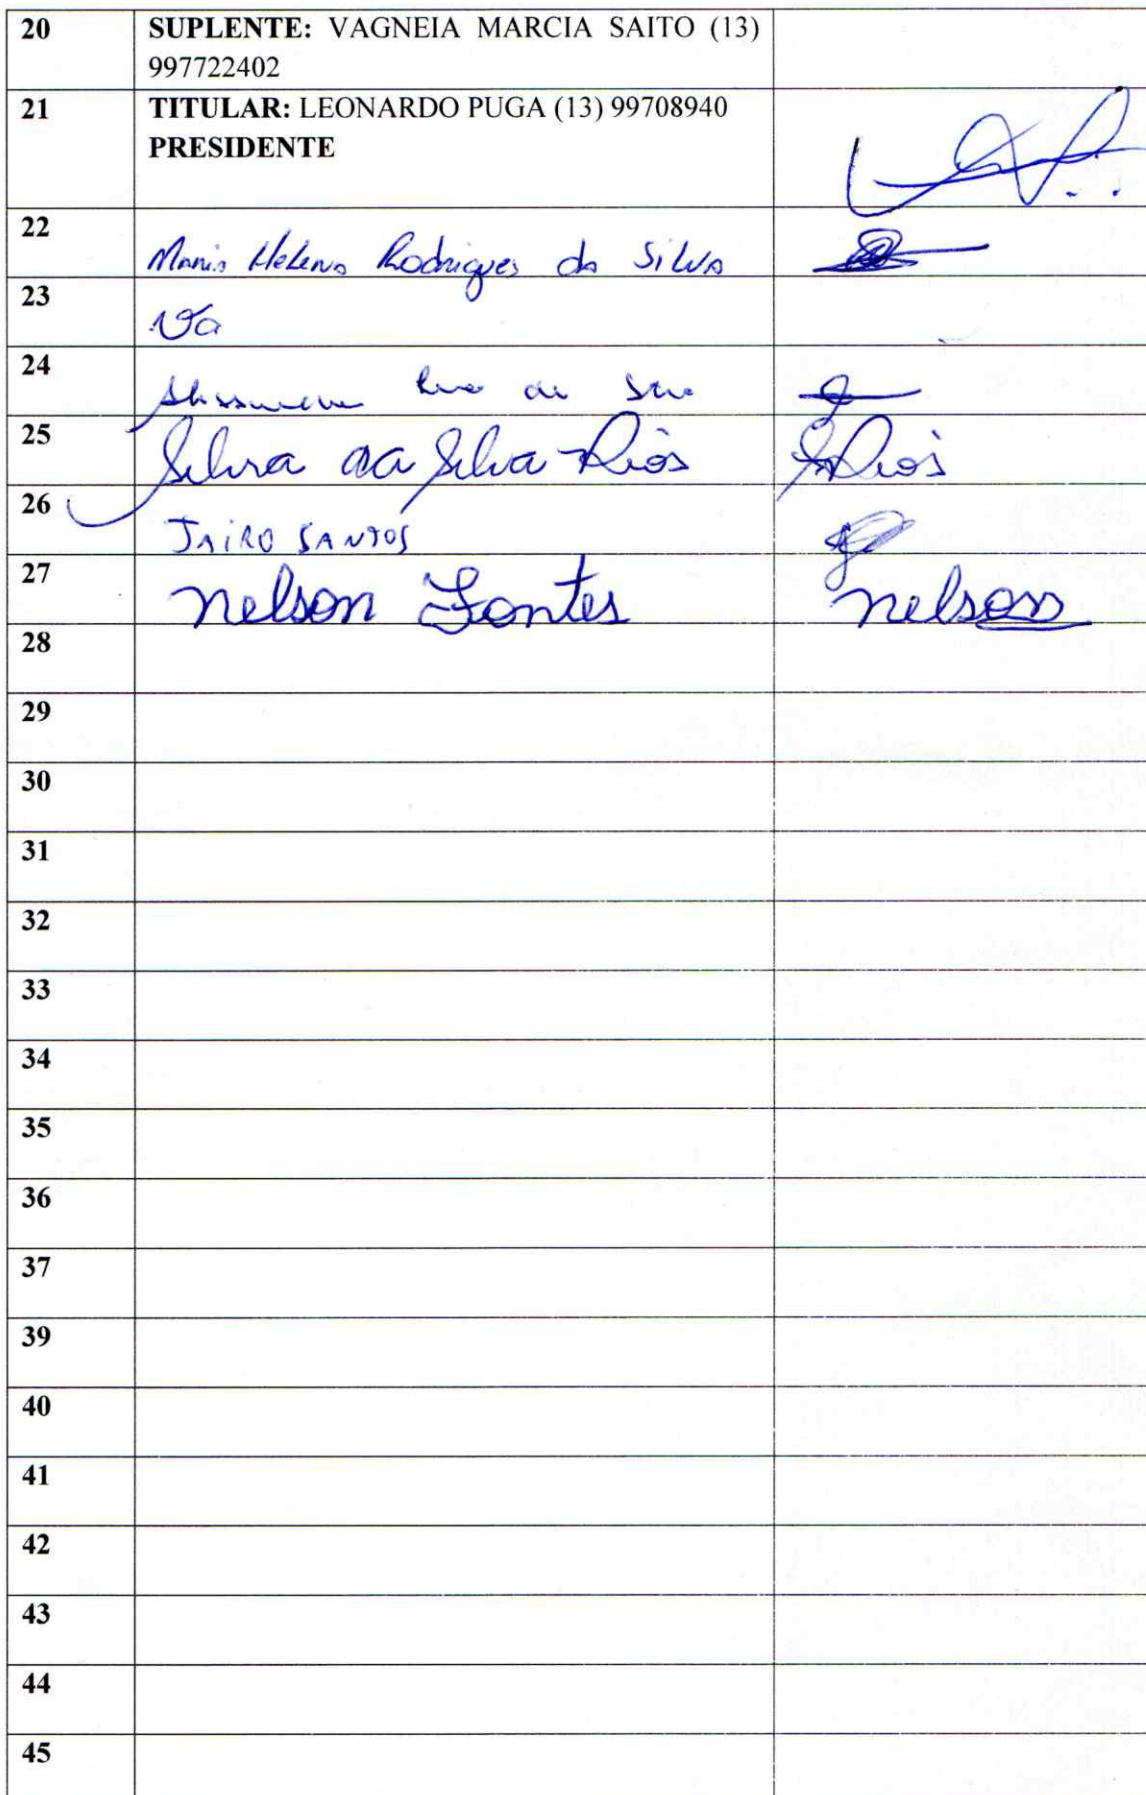 20 SUPLENTE: VAGNEIA MARCIA SAITO (13)
997722402
21 TITULAR: LEONARDO PUGA (13) 99708940
PRESIDENTE
22
Maria Helena Rodrigues da Silva
23
24
25
Silvia da Silva Riòs Riòs
26
JAIRO SANTOS
27
nelson Fontes nelson
28
29
30
31
32
33
34
35
36
37
39
40
41
42
43
44
45